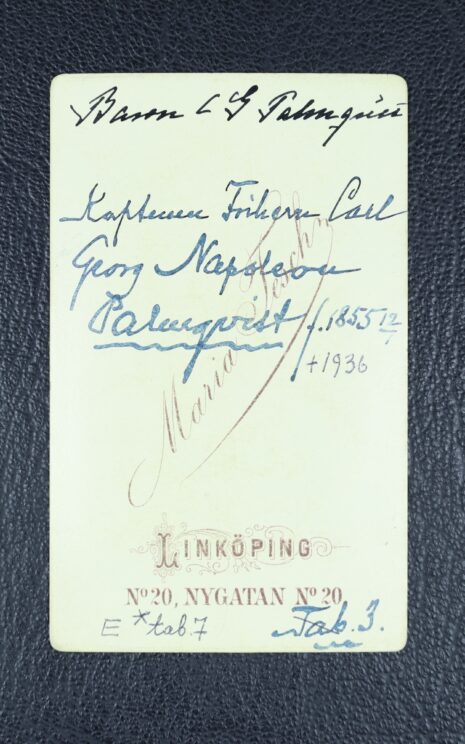 Baron C G Palmquist
Kaptenen Friherre Carl
Georg Napoleon
Palmqvist f. 1855 12/7
+1936
Maria Tesch
LINKÖPING
Nº 20, NYGATAN Nº 20.
E * tab.7
Tab. 3.